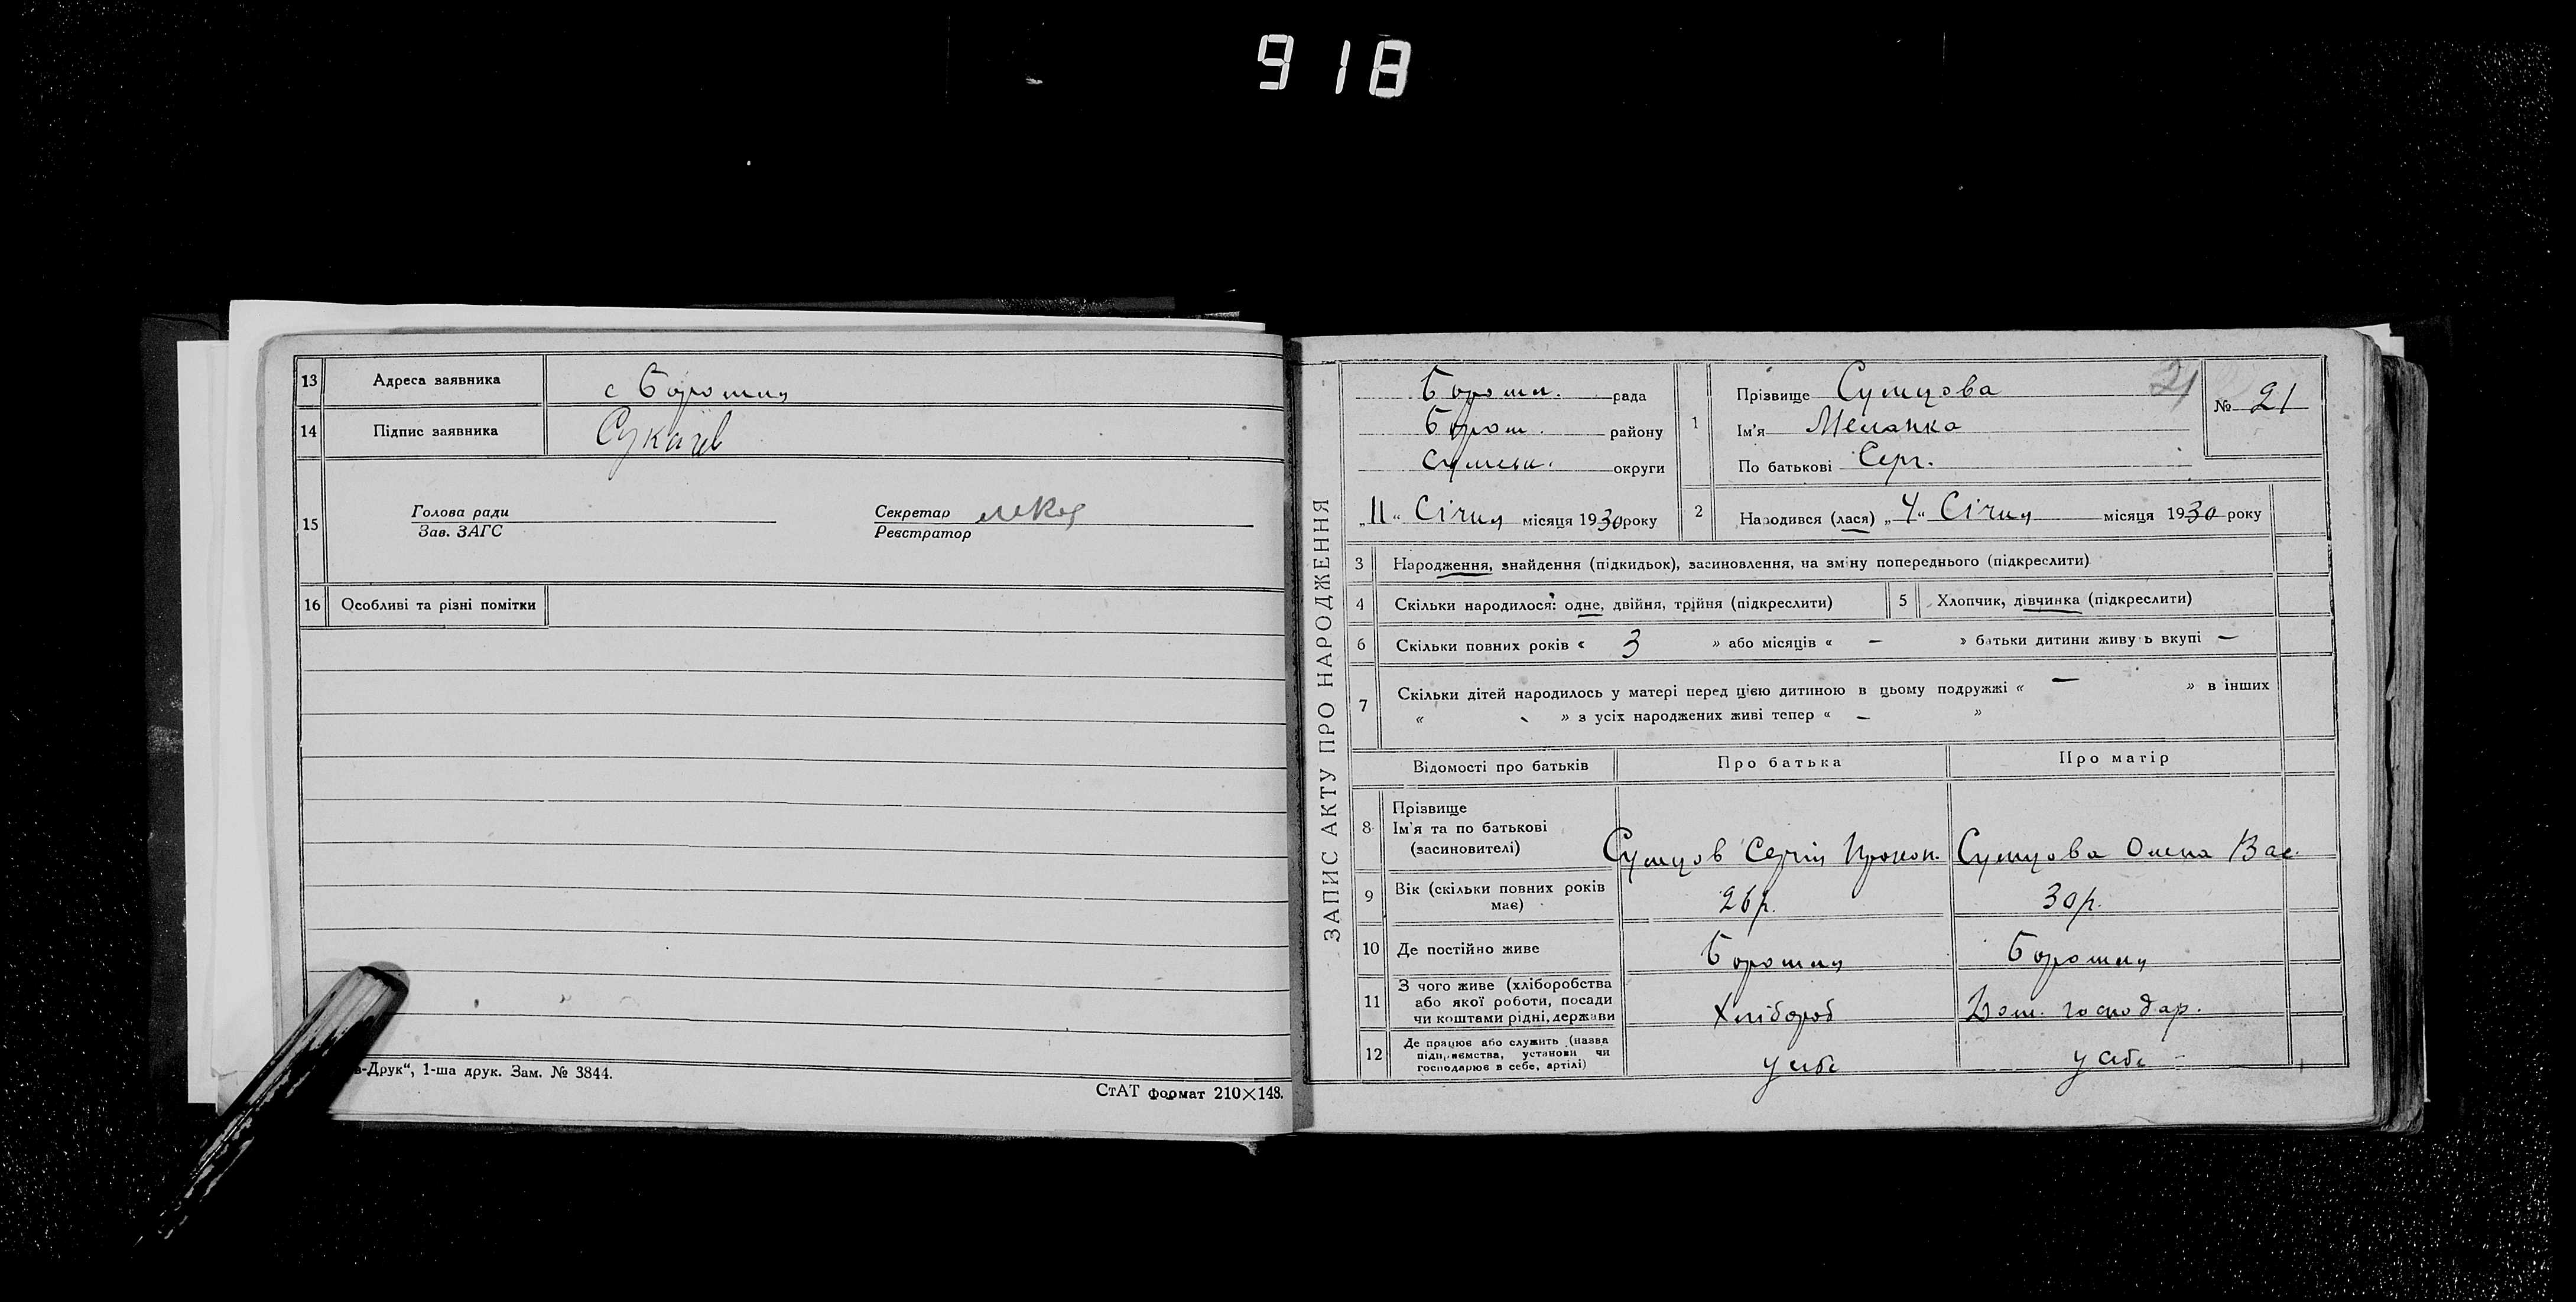 918
13 Адреса заявника с Боромля
14 Підпис заявника Сукачев
15 Голова ради Секретар
Зав. ЗАГС Реєстратор
16 Особливі та різні помітки
в-Друк“, 1-ша друк. Зам. № 3844.
СтАТ формат 210×148.
ЗАПИС АКТУ ПРО НАРОДЖЕННЯ
Боромл. рада
Бором. району
Сумськ. округи
„11“ Січня місяця 1930 року
1 Прізвище Сумцова 21
Ім'я Меланка
По батькові Серг.
№ 21
2 Народився (лася) „4“ Січня місяця 1930 року
3 Народження, знайдення (підкидьок), засиновлення, на зміну попереднього (підкреслити)
4 Скільки народилося: одне, двійня, трійня (підкреслити) 5 Хлопчик, дівчинка (підкреслити)
6 Скільки повних років « 3 » або місяців « — » батьки дитини живуть вкупі —
7 Скільки дітей народилось у матері перед цією дитиною в цьому подружжі « — » в інших
« » з усіх народжених живі тепер « — »
Відомості про батьків Про батька Про матір
8 Прізвище
Ім'я та по батькові
(засиновителі) Сумцов Сергій Прокоп. Сумцова Олена Вас.
9 Вік (скільки повних років
має) 26 р. 30 р.
10 Де постійно живе Боромля Боромля
11 З чого живе (хліборобства
або якої роботи, посади
чи коштами рідні, держави Хлібороб Дом. господар.
12 Де працює або служить (назва
підприємства, установи чи
господарює в себе, артілі) у себе у себе